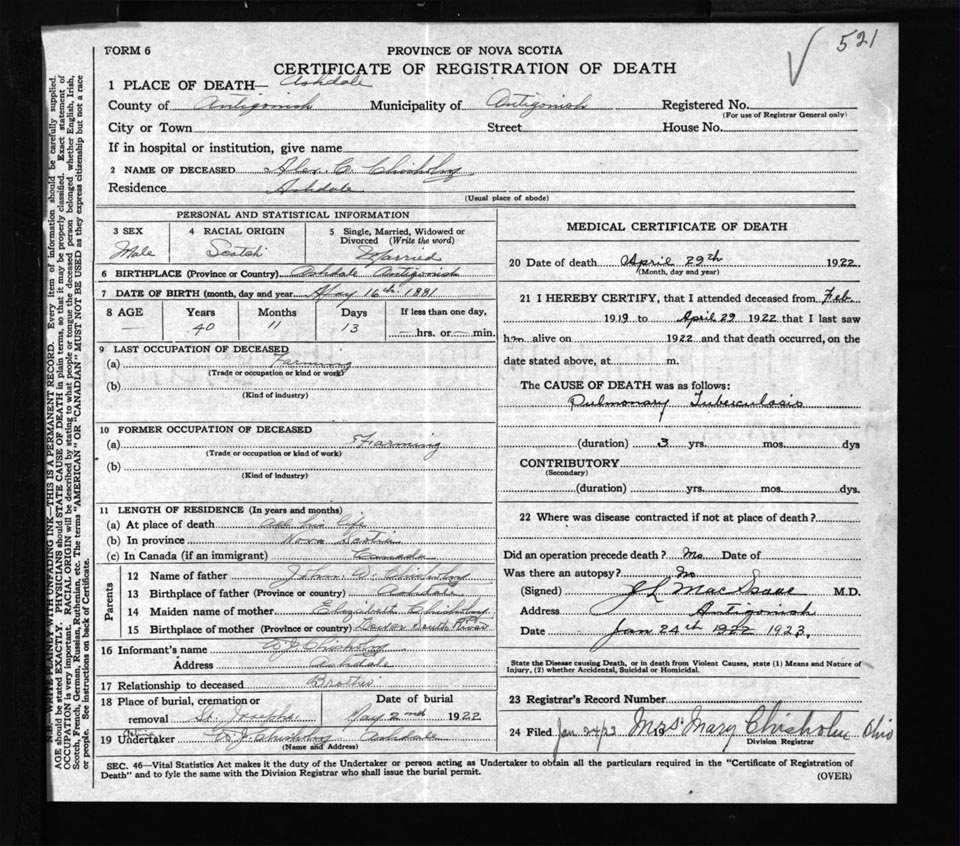 521
FORM 6
PROVINCE OF NOVA SCOTIA
CERTIFICATE OF REGISTRATION OF DEATH
1 PLACE OF DEATH— Ashdale
County of Antigonish Municipality of Antigonish Registered No.
(For use of Registrar General only)
City or Town Street House No.
If in hospital or institution, give name
2 NAME OF DECEASED Alex. Chisholm
Residence Ashdale
(Usual place of abode)
PERSONAL AND STATISTICAL INFORMATION
3 SEX 4 RACIAL ORIGIN 5 Single, Married, Widowed or
Divorced (Write the word)
Male Scotch Married
6 BIRTHPLACE (Province or Country) Ashdale Antigonish
7 DATE OF BIRTH (month, day and year) May 16th 1881
8 AGE Years Months Days If less than one day,
— 40 11 13 — hrs. or — min.
9 LAST OCCUPATION OF DECEASED
(a) Farming
(Trade or occupation or kind or work)
(b)
(Kind of industry)
10 FORMER OCCUPATION OF DECEASED
(a) Farming
(Trade or occupation or kind of work)
(b)
(Kind of industry)
11 LENGTH OF RESIDENCE (In years and months)
(a) At place of death all his life
(b) In province Nova Scotia
(c) In Canada (if an immigrant) Canada
Parents
12 Name of father John D. Chisholm
13 Birthplace of father (Province or country) Ashdale
14 Maiden name of mother Elizabeth Chisholm
15 Birthplace of mother (Province or country) South River
16 Informant's name J Chisholm
Address Ashdale
17 Relationship to deceased Brother
18 Place of burial, cremation or Date of burial
removal St. Josephs May 2nd 1922
19 Undertaker J Chisholm Ashdale
(Name and Address)
MEDICAL CERTIFICATE OF DEATH
20 Date of death April 29th 1922
(Month, day and year)
21 I HEREBY CERTIFY, that I attended deceased from Feb.
1919 to April 29 1922 that I last saw
him alive on 1922 and that death occurred, on the
date stated above, at m.
The CAUSE OF DEATH was as follows:
Pulmonary Tuberculosis
(duration) 3 yrs. mos. dys
CONTRIBUTORY
(Secondary)
(duration) yrs. mos. dys.
22 Where was disease contracted if not at place of death?
Did an operation precede death? No Date of
Was there an autopsy? No
(Signed) J L MacIsaac M.D.
Address Antigonish
Date Jan 24th 1922 1923.
State the Disease causing Death, or in death from Violent Causes, state (1) Means and Nature of
Injury, (2) whether Accidental, Suicidal or Homicidal.
23 Registrar's Record Number
24 Filed Jan 24/23 Mrs. Mary Chisholm Ohio
Division Registrar
SEC. 46—Vital Statistics Act makes it the duty of the Undertaker or person acting as Undertaker to obtain all the particulars required in the "Certificate of Registration of
Death" and to fyle the same with the Division Registrar who shall issue the burial permit.
(OVER)
N.B.—WRITE PLAINLY WITH UNFADING INK—THIS IS A PERMANENT RECORD. Every item of information should be carefully supplied.
AGE should be stated EXACTLY. PHYSICIANS should STATE CAUSE OF DEATH in plain terms, so that it may be properly classified. Exact statement of
OCCUPATION is very important. RACIAL ORIGIN will be described by stating to what people or tongue the deceased person belonged whether English, Irish,
Scotch, French, German, Russian, Ruthenian, etc. The terms "AMERICAN" OR "CANADIAN" MUST NOT BE USED as they express citizenship but not a race
or people. See instructions on back of Certificate.